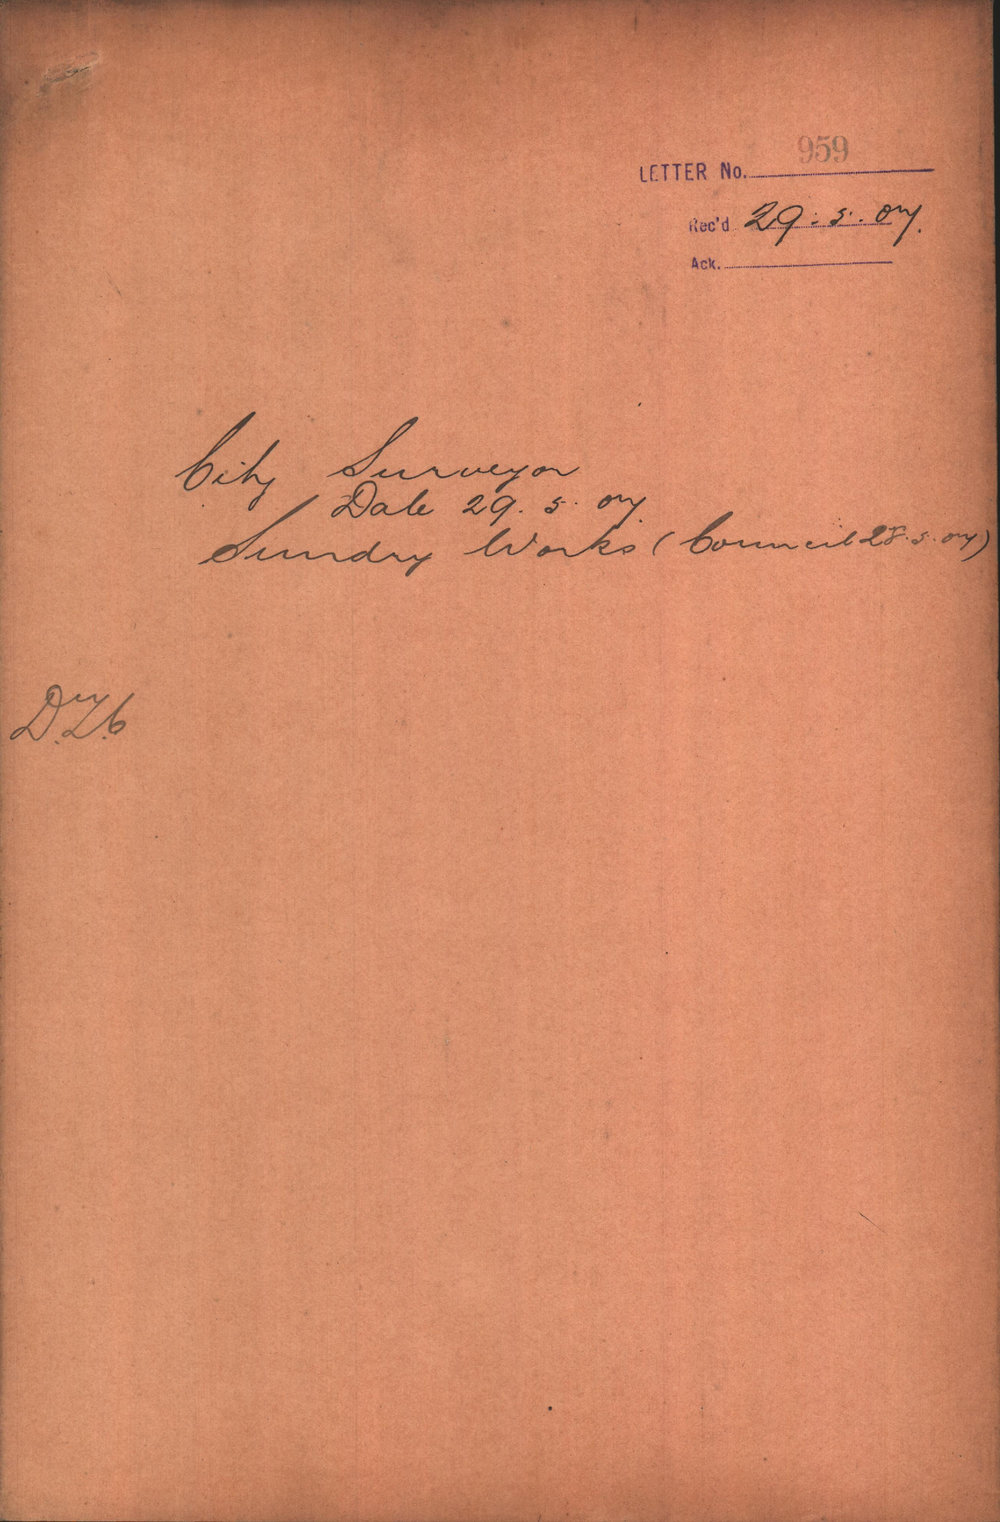 959
LETTER No.
Rec'd 29.5.07.
Ack.
City Surveyor
Date 29.5.07
Sundry Works (Council 28.5.07)